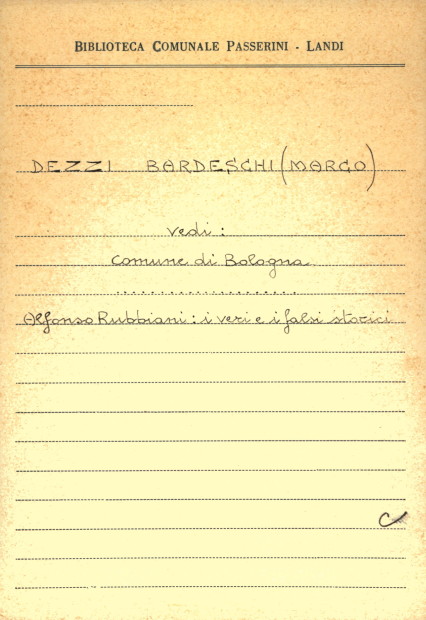 BIBLIOTECA COMUNALE PASSERINI - LANDI
DEZZI BARDESCHI (MARCO)
vedi :
Comune di Bologna
.....................
Alfonso Rubbiani : i veri e i falsi storici
C